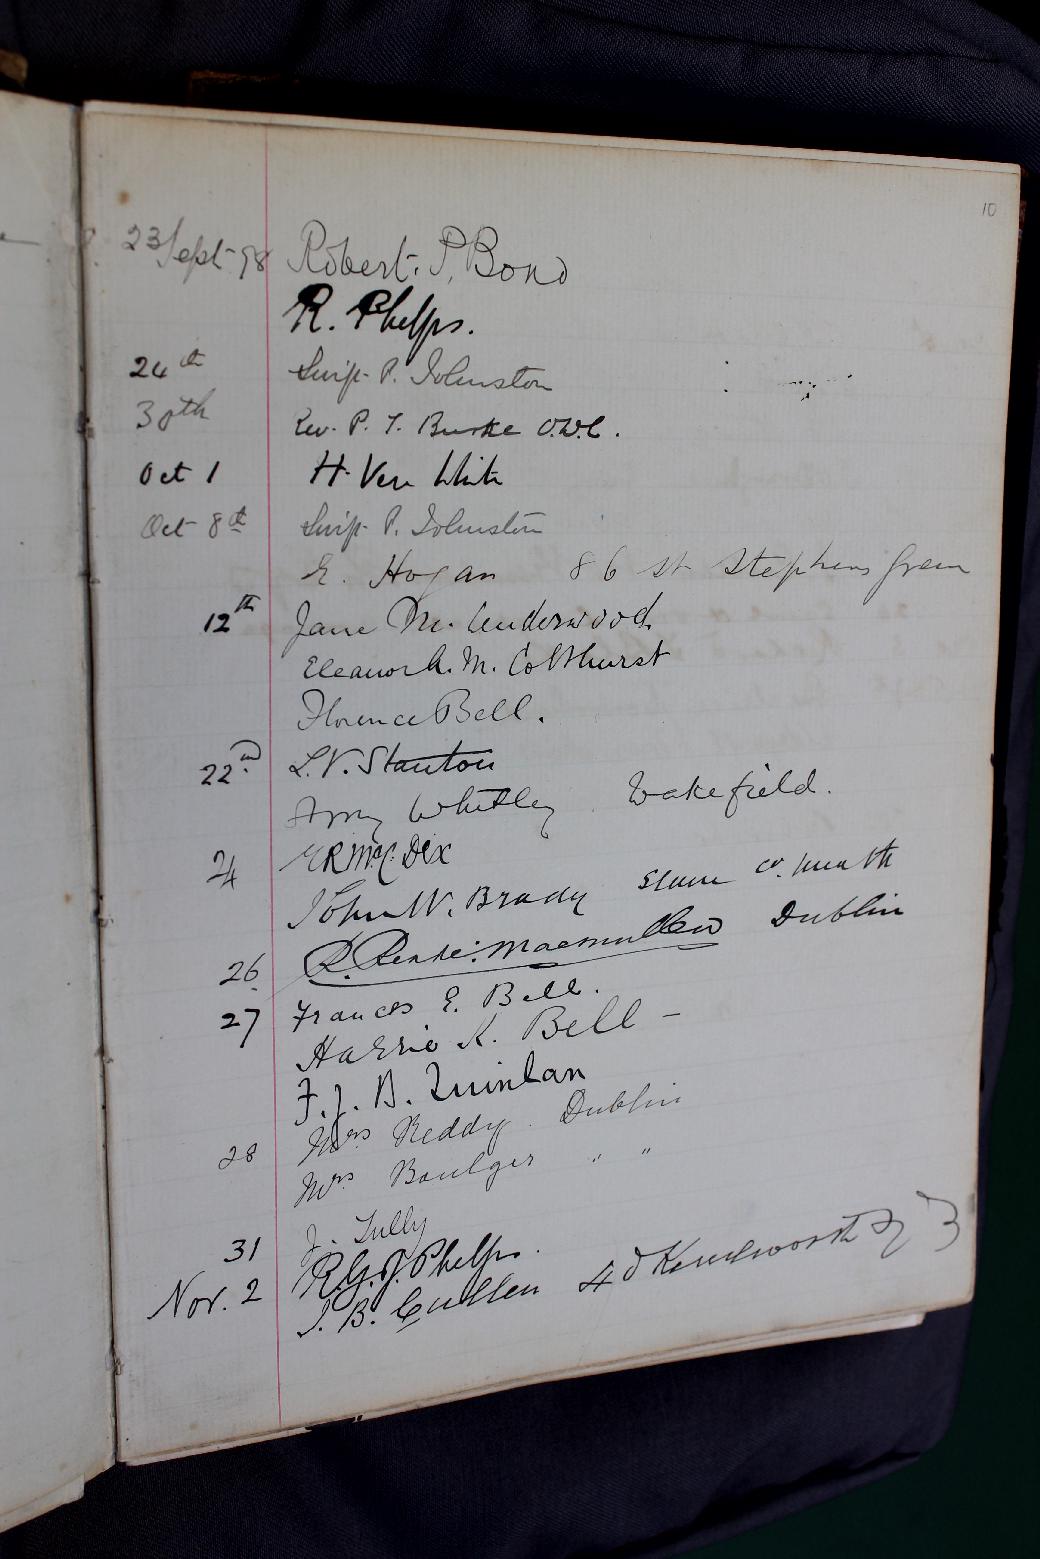 10
23 Sept 98 Robert. P. Bond
R. Phelps.
24th Swift P. Johnston
30th Rev. P. T. Burke O.D.C.
Oct 1 H Vere White
Oct 8th Swift P. Johnston
E. Hogan 86 St Stephens Green
12th Jane M. Underwood
Eleanor A. M. Colthurst
Florence Bell.
22nd L.V. Staunton
Amy Whitley Wakefield.
24 E R McC. Dix
John W. Brady Slane Co. Meath
26 Macmullen Dublin
27 Frances E. Bell.
Harrie K. Bell -
F. J. B. Quinlan
28 Mrs Reddy. Dublin
Mrs Boulger " "
31 J. Tully
Nov. 2 R.G.J. Phelps.
J. B. Cullen 40 Kenilworth Sq